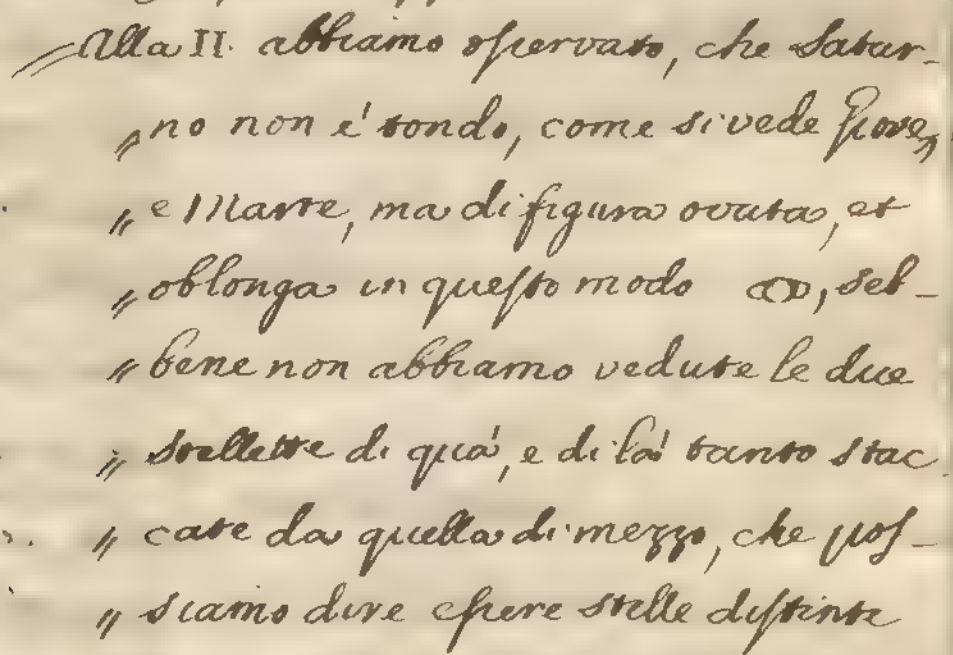 Alla II. abbiamo osservato, che Satur-
„ no non é tondo, come si vede Giove,
„ e Marte, ma di figura ovata, et
„ oblonga in questo modo , seb-
„ bene non abbiamo vedute le due
„ stellette di quá, e di lá tanto stac
„ cate da quella di mezzo, che pos-
„ siamo dire essere stelle distinte